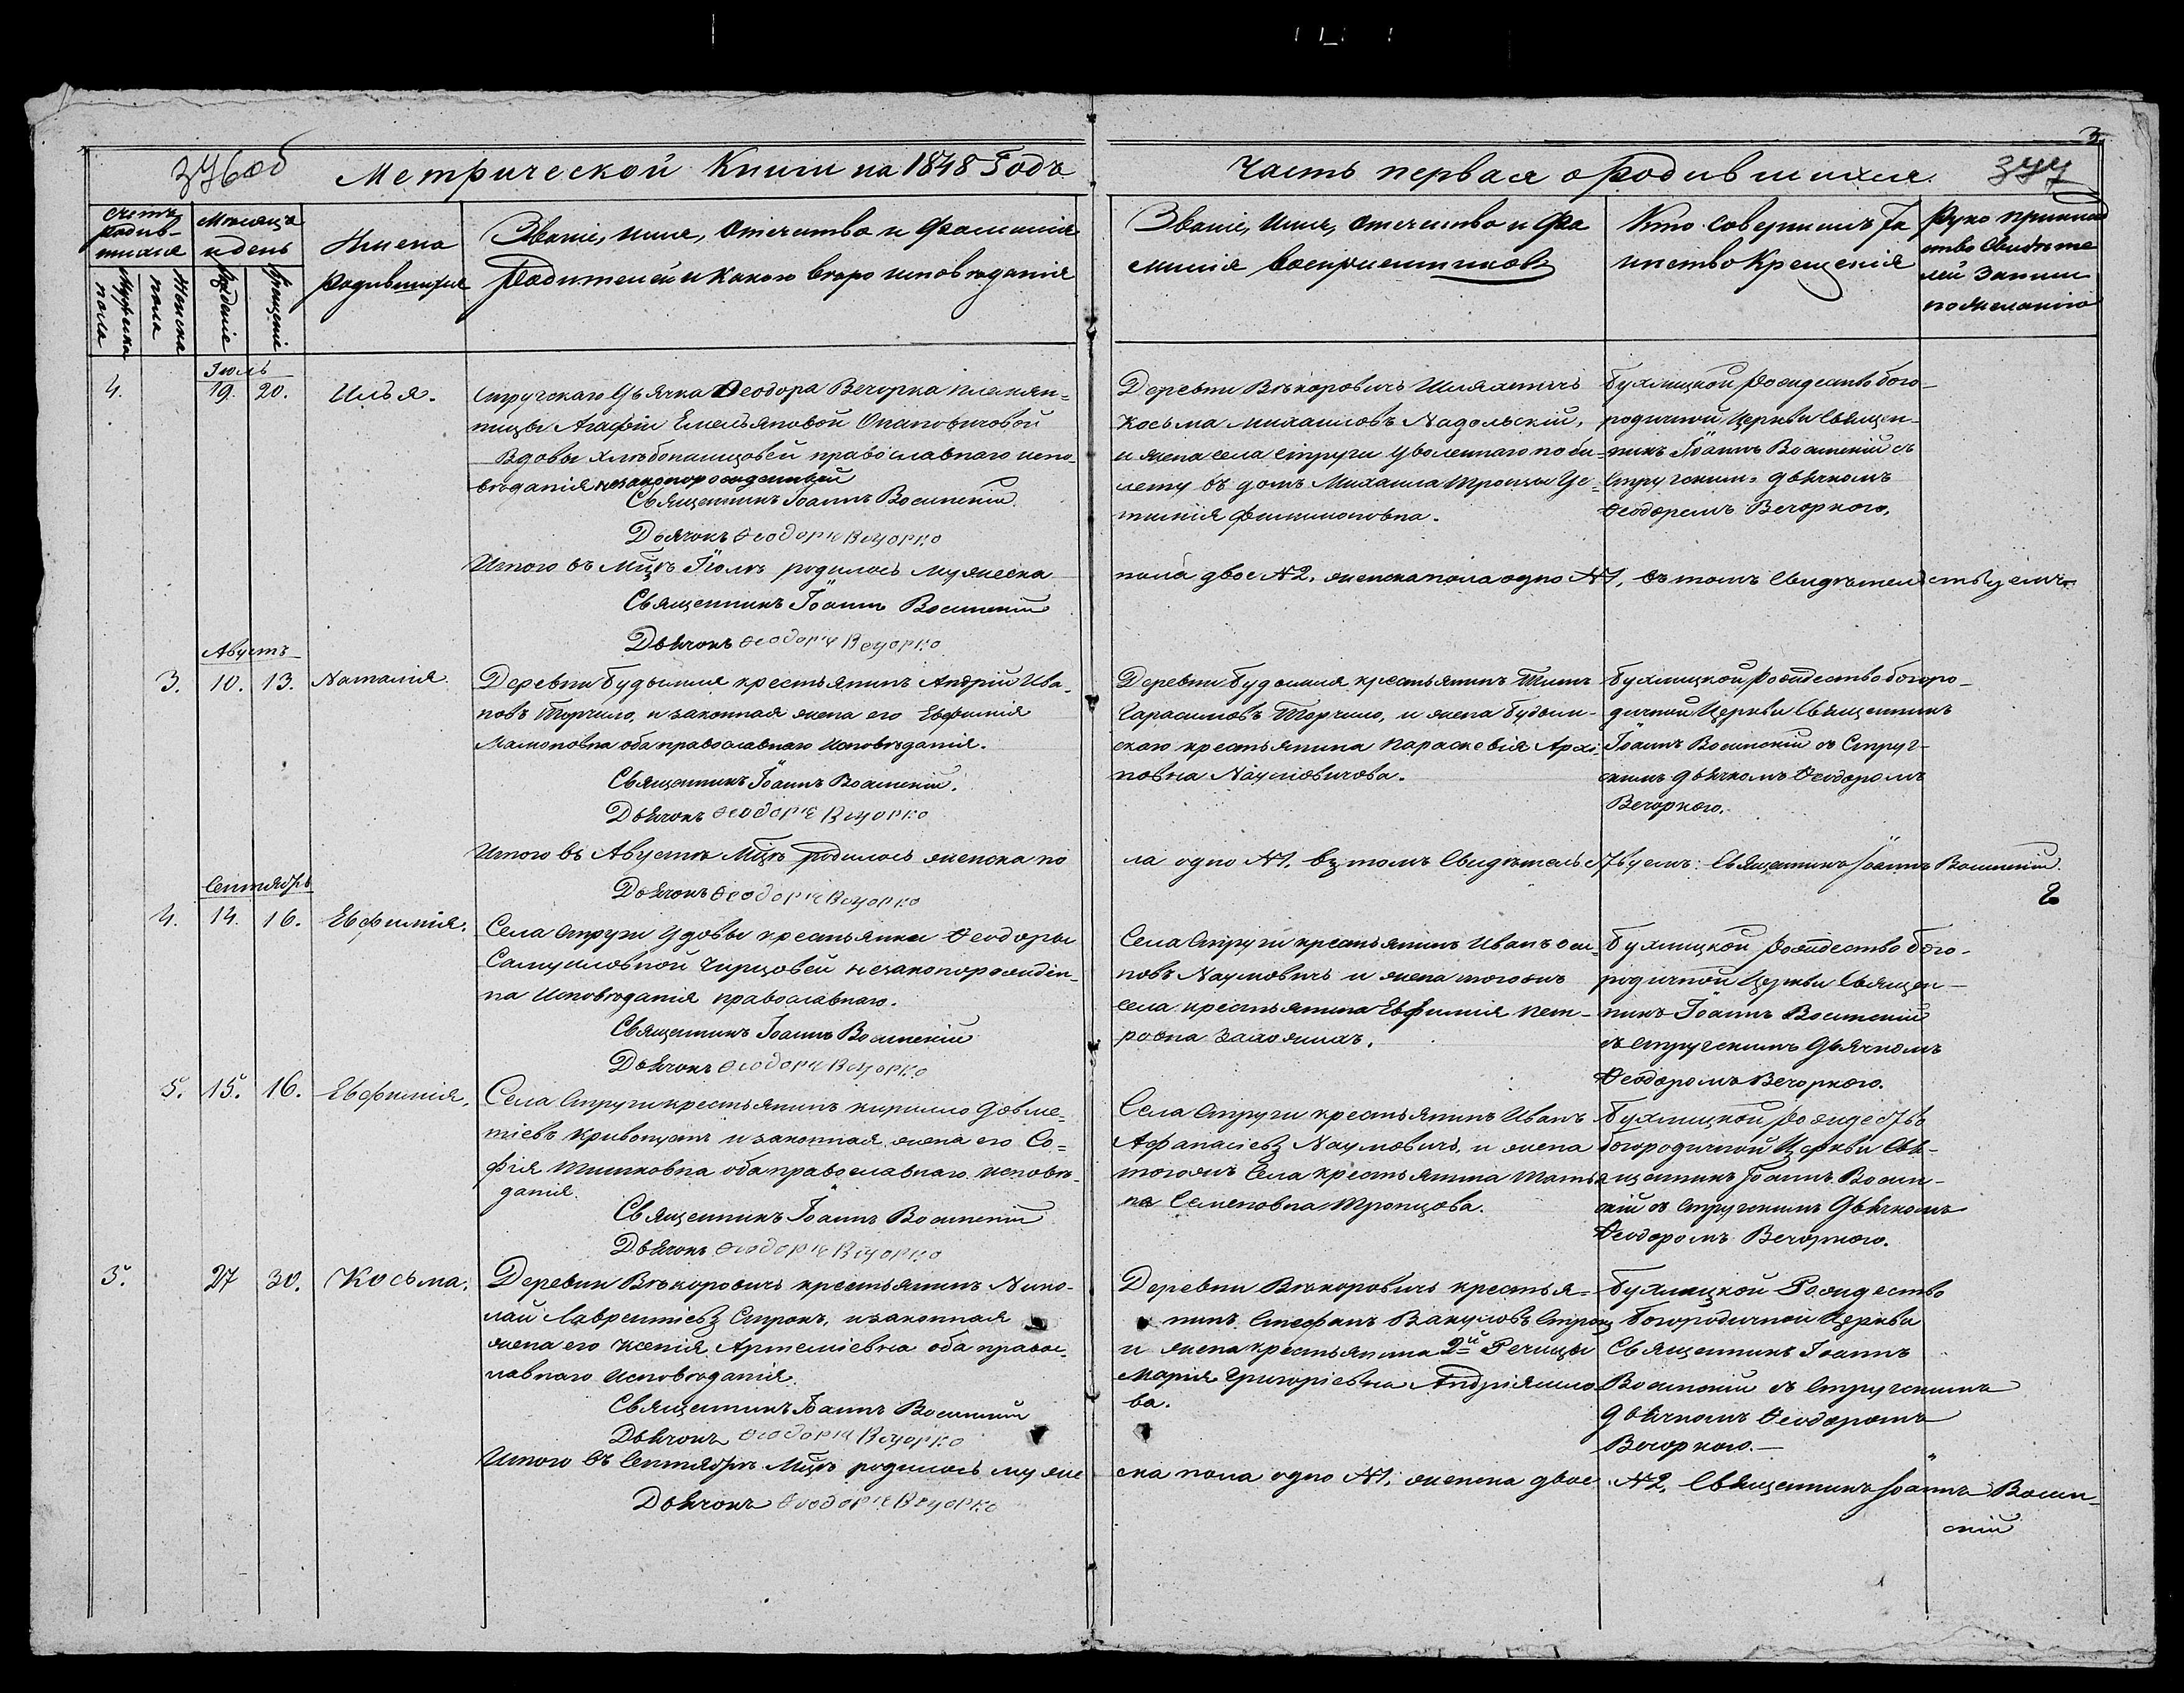 3
376об Метрической Книги на 1848 Годъ
Часть первая о родившихся. 377
Счетъ родив-
шихся
Мужеска пола
Женска пола
Месяцъ
и день
Рождение
Крещение
Имена
родившихся
Званіе, имя, отечество и Фамилія
Родителей и какого вероисповеданія
Званіе, имя, отечество и Фа
милія воспріемниковъ
Кто совершилъ Та
инство Крещенія
Руко приклад
ство Свидете
лей записи
по желанію
Іюль
4. 19. 20. Илья.
Стругскаго Дьячка Ѳеодора Вечорка племян=
ницы Агафіи Емельяновой
Вдовы православнаго испо-
вѣданія незаконорожденный
Священникъ Іоаннъ Воминскій
Дьячокъ Ѳеодоръ Вечорко
Деревни Вѣкоровичь Шляхтичь
Косьма Михаиловъ Надольскій,
и жена села Струги уволеннаго по би-
лету въ домъ Михаила
Филимоновна.
Бухлицкой Рождество бого-
родичной Церкви Священ-
никъ Іоаннъ Воминскій съ
Стругскимъ дьячкомъ
Ѳеодоромъ Вечоркого.
Итого въ Мцѣ Іюлѣ родилось мужеска
пола двое №2, женска пола одно №1, въ томъ свидѣтельствуемъ
Священникъ Іоаннъ Воминскій
Дьячокъ Ѳеодоръ Вечорко
Августъ
3. 10. 13. Наталія.
Деревни Будымля крестьянинъ Андрій Ива-
новъ Торчило, и законная жена его Евфимія
оба православнаго Исповѣданія.
Священникъ Іоаннъ Воминскій.
Дьячокъ Ѳеодоръ Вечорко
Деревни Будымля крестьянинъ
Гарасимовъ Торчило, и жена Будым-
скаго крестьянина Параскевія Архи-
повна Наумовичова.
Бухлицкой Рождество богоро-
дичной Церкви Священникъ
Іоаннъ Воминскій съ Струг-
скимъ дьячкомъ Ѳеодоромъ
Вечоркого.
Итого въ Августѣ Мцѣ родилось женска по
ла одно №1. въ томъ свидѣтельствуемъ: Священникъ Іоаннъ Воминскій.
Дьячокъ Ѳеодоръ Вечорко
2
Сентябрь
4. 14. 16. Евфимія.
Села Струги Удовы крестьянки Ѳеодоры
Самуиловной незаконорожден-
на Исповѣданія православнаго.
Священникъ Іоаннъ Воминскій
Дьячокъ Ѳеодоръ Вечорко
Села Струги крестьянинъ Иванъ
Наумовичь и жена тогожъ
села крестьянина Евфимія Пет-
ровна
Бухлицкой Рождество бого-
родичной Церкви Священ-
никъ Іоаннъ Воминскій
съ Стругскимъ Дьячкомъ
Ѳеодоромъ Вечоркого.
5. 15. 16. Евфимія.
Села Струги крестьянинъ Кирилло
и законная жена его Со=
фія оба православнаго исповѣ-
данія.
Священникъ Іоаннъ Воминскій
Дьячокъ Ѳеодоръ Вечорко
Села Струги крестьянинъ Иванъ
Афанасіевъ Наумовичь, и жена
тогожъ Села крестьянина Татья
на Семеновна
Бухлицкой Рождество
богородичной Церкви Свя-
щенникъ Іоаннъ Вомин-
скій съ Стругскимъ Дьячкомъ
Ѳеодоромъ Вечоркого.
5. 27 30. Косьма.
Деревни Вѣкоровичь крестьянинъ Нико-
лай Лаврентіевъ Строкъ, и законная
жена его Ксенія Артеміевна оба правос-
лавнаго Исповѣданія.
Священникъ Іоаннъ Воминскій
Дьячокъ Ѳеодоръ Вечорко
Деревни Вѣкоровичь крестья=
нинъ Стефанъ Вакуловъ Строкъ
и жена крестьянина 2й Речицы
Марія Григоріевна
ва.
Бухлицкой Рождество
Богородичной Церкви
Священникъ Іоаннъ
Воминскій съ Стругскимъ
дьячкомъ Ѳеодоромъ
Вечоркого.—
Итого въ Сентябрѣ Мцѣ родилось муже
ска пола одно №1, женска двое №2, Священникъ Іоаннъ Вомин-
скій
Дьячокъ Ѳеодоръ Вечорко